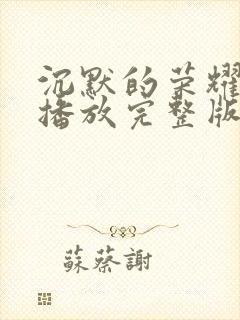 沉默的荣耀
播放完整版
蘇蔡謝